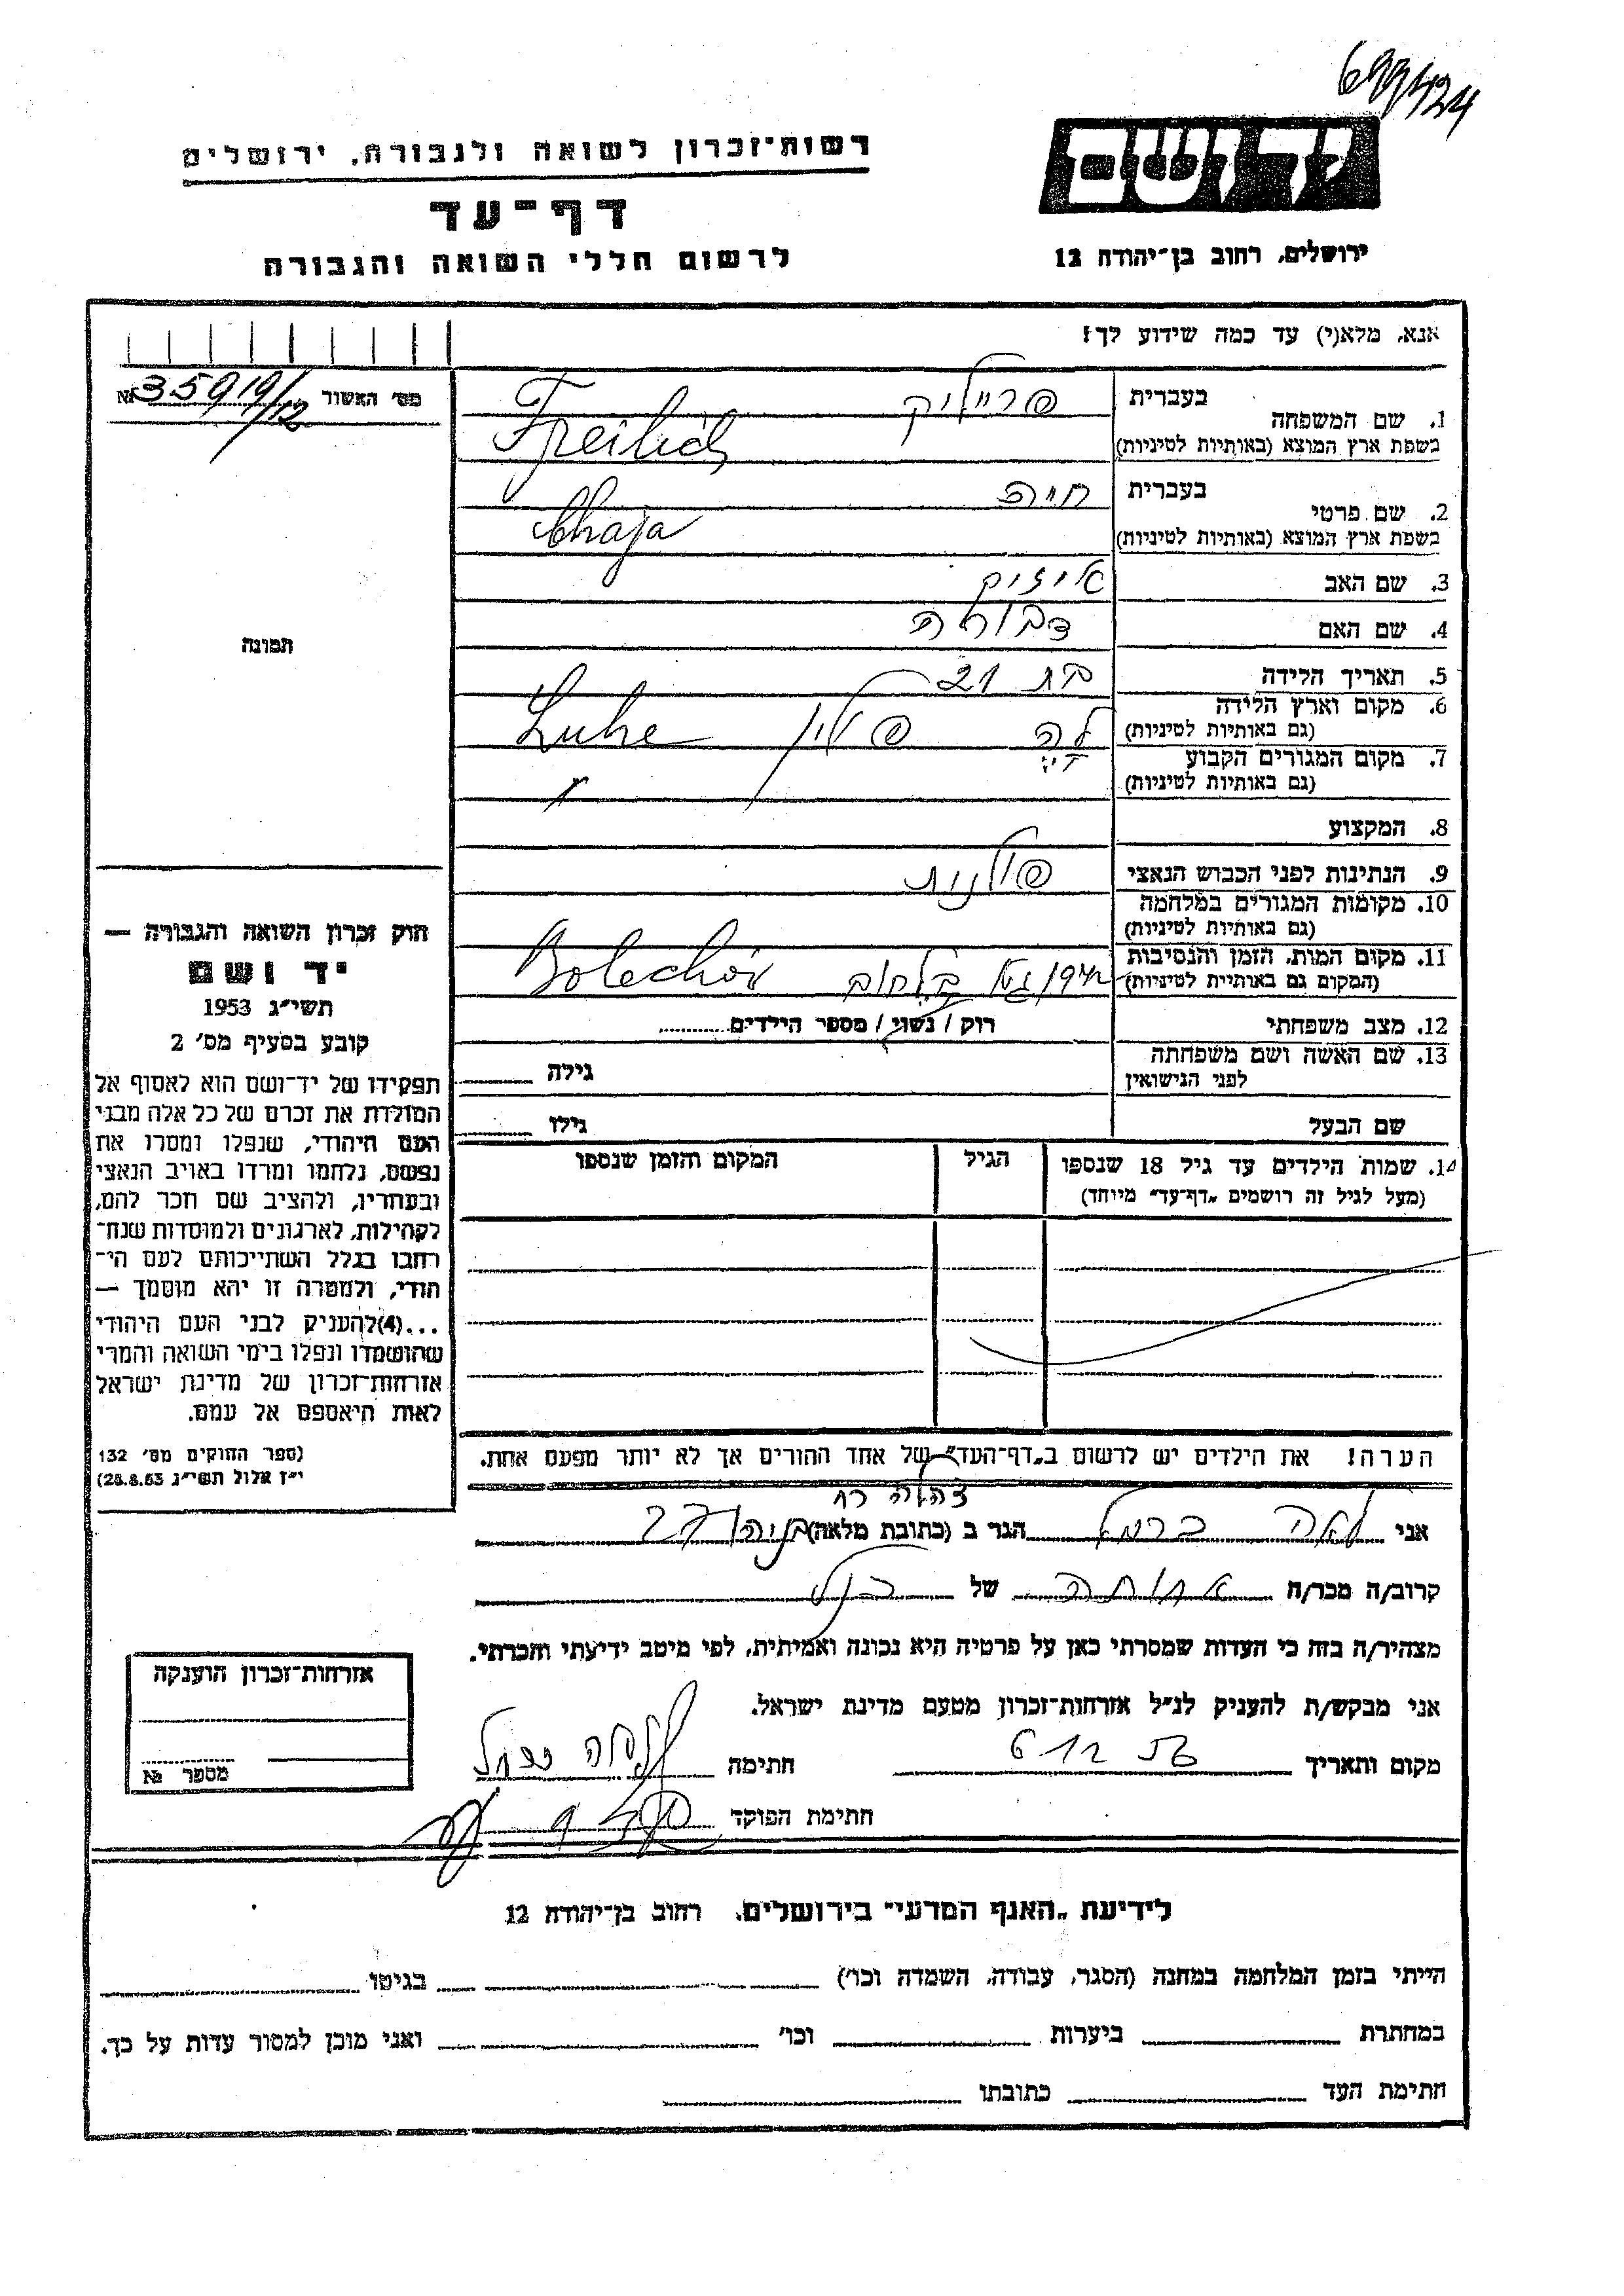 רשות־זכרון לשואה ולגבורה, ירושלים
דף־עד
לרשום חללי השואה והגבורה
יד ושם
ירושלים, רחוב בן־יהודה 12
אנא, מלא(י) עד כמה שידוע לך!
מס׳ האשור 35919/12 №
1. שם המשפחה
בעברית פרייליק
בשפת ארץ המוצא (באותיות לטיניות) Freilich
2. שם פרטי
בעברית חיה
בשפת ארץ המוצא (באותיות לטיניות) Chaja
3. שם האב אייזיק
4. שם האם דבורה
5. תאריך הלידה בת 21
6. מקום וארץ הלידה
(גם באותיות לטיניות) פולין Luhe
7. מקום המגורים הקבוע
(גם באותיות לטיניות)
8. המקצוע
9. הנתינות לפני הכבוש הנאצי פולנית
10. מקומות המגורים במלחמה
(גם באותיות לטיניות)
11. מקום המות, הזמן והנסיבות
(המקום גם באותיית לטיניות) Bolechów
12. מצב משפחתי רוק / נשוי / מספר הילדים
13. שם האשה ושם משפחתה
לפני הנישואין גילה
שם הבעל גילו
14. שמות הילדים עד גיל 18 שנספו
(מעל לגיל זה רושמים „דף־עד״ מיוחד)
הגיל
המקום והזמן שנספו
הערה! את הילדים יש לרשום ב„דף־העד״ של אחד ההורים אך לא יותר מפעם אחת.
תמונה
חוק זכרון השואה והגבורה —
יד ושם
תשי״ג 1953
קובע בסעיף מס׳ 2
תפקידו של יד־ושם הוא לאסוף אל
המולדת את זכרם של כל אלה מבני
העם היהודי, שנפלו ומסרו את
נפשם, נלחמו ומרדו באויב הנאצי
ובעוזריו, ולהציב שם וזכר להם,
לקהילות, לארגונים ולמוסדות שנח־
רבו בגלל השתייכותם לעם הי־
הודי, ולמטרה זו יהא מוסמך —
...(4) להעניק לבני העם היהודי
שהושמדו ונפלו בימי השואה והמרי
אזרחות־זכרון של מדינת ישראל
לאות היאספם אל עמם.
(ספר החוקים מס׳ 132
י״ז אלול תשי״ג 28.8.53)
אני לאה כרמל הגר ב (כתובת מלאה)
קרוב/ה מכר/ה אחותה של הנ״ל
מצהיר/ה בזה כי העדות שמסרתי כאן על פרטיה היא נכונה ואמיתית, לפי מיטב ידיעתי והכרתי.
אני מבקש/ת להעניק לנ״ל אזרחות־זכרון מטעם מדינת ישראל.
מקום ותאריך 6 12 חתימה
חתימת הפוקד
אזרחות־זכרון הוענקה
מספר №
לידיעת „האגף המדעי״ בירושלים, רחוב בן־יהודה 12
הייתי בזמן המלחמה במחנה (הסגר, עבודה, השמדה וכו׳) בגיטו
במחתרת ביערות וכו׳ ואני מוכן למסור עדות על כך.
חתימת העד כתובתו